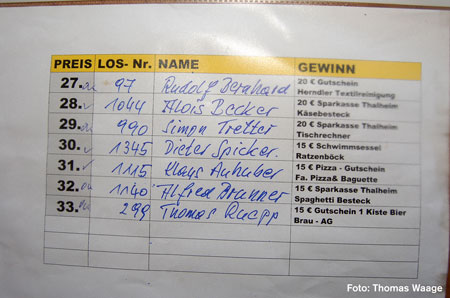 PREIS LOS- Nr. NAME GEWINN
27. 97 Rudolf Bernhard 20 € Gutschein
Herndler Textilreinigung
28. 1044 Alois Becker 20 € Sparkasse Thalheim
Käsebesteck
29. 990 Simon Tretter 20 € Sparkasse Thalheim
Tischrechner
30. 1345 Dieter Spicker. 15 € Schwimmsessel
Ratzenböck
31. 1115 Klaus Auhuber 15 € Pizza - Gutschein
Fa. Pizza& Baguette
32. 1140 Alfred Brunner 15 € Sparkasse Thalheim
Spaghetti Besteck
33. 299 Thomas 15 € Gutschein 1 Kiste Bier
Brau - AG
Foto: Thomas Waage